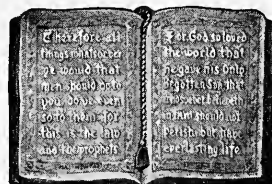 Therefore all
things whatsoever
ye would that
men should do to
you do ye even
so to them for
this is the law
and the prophets
For God so loved
the world that
he gave his only
begotten Son that
whosoever believeth
in him should not
perish but have
everlasting life